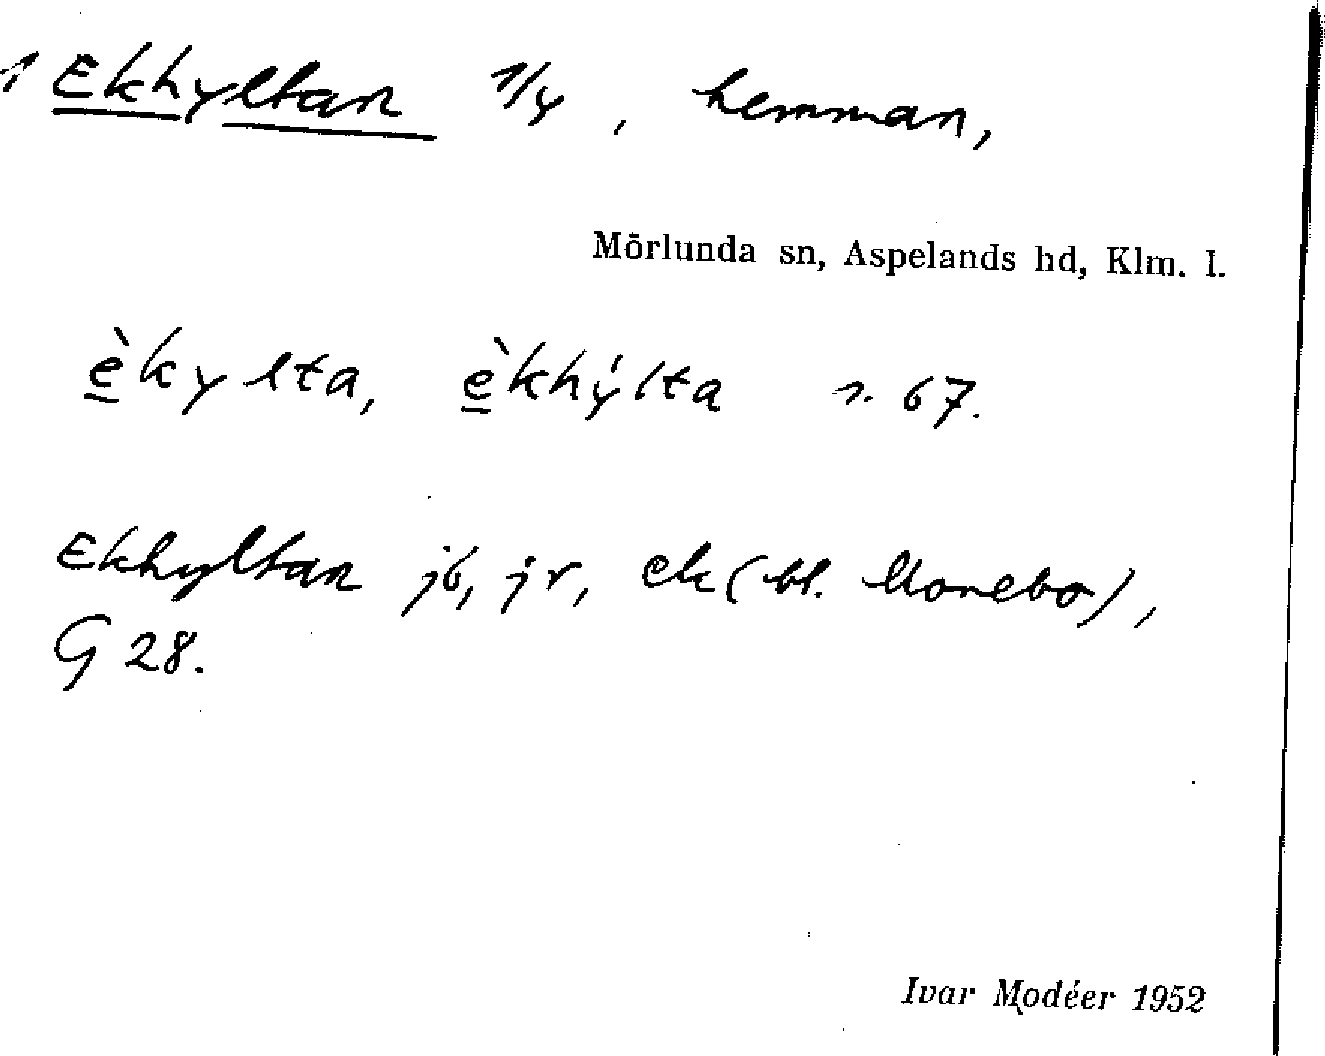 1 Ekhyltan 1/4, hemman,
Mörlunda sn, Aspelands hd, Klm. l.
èkylta, èkhýlta s. 67.
Ekhyltan jb, jr, ek (bl. Monebo),
G 28.
Ivar Modéer 1952